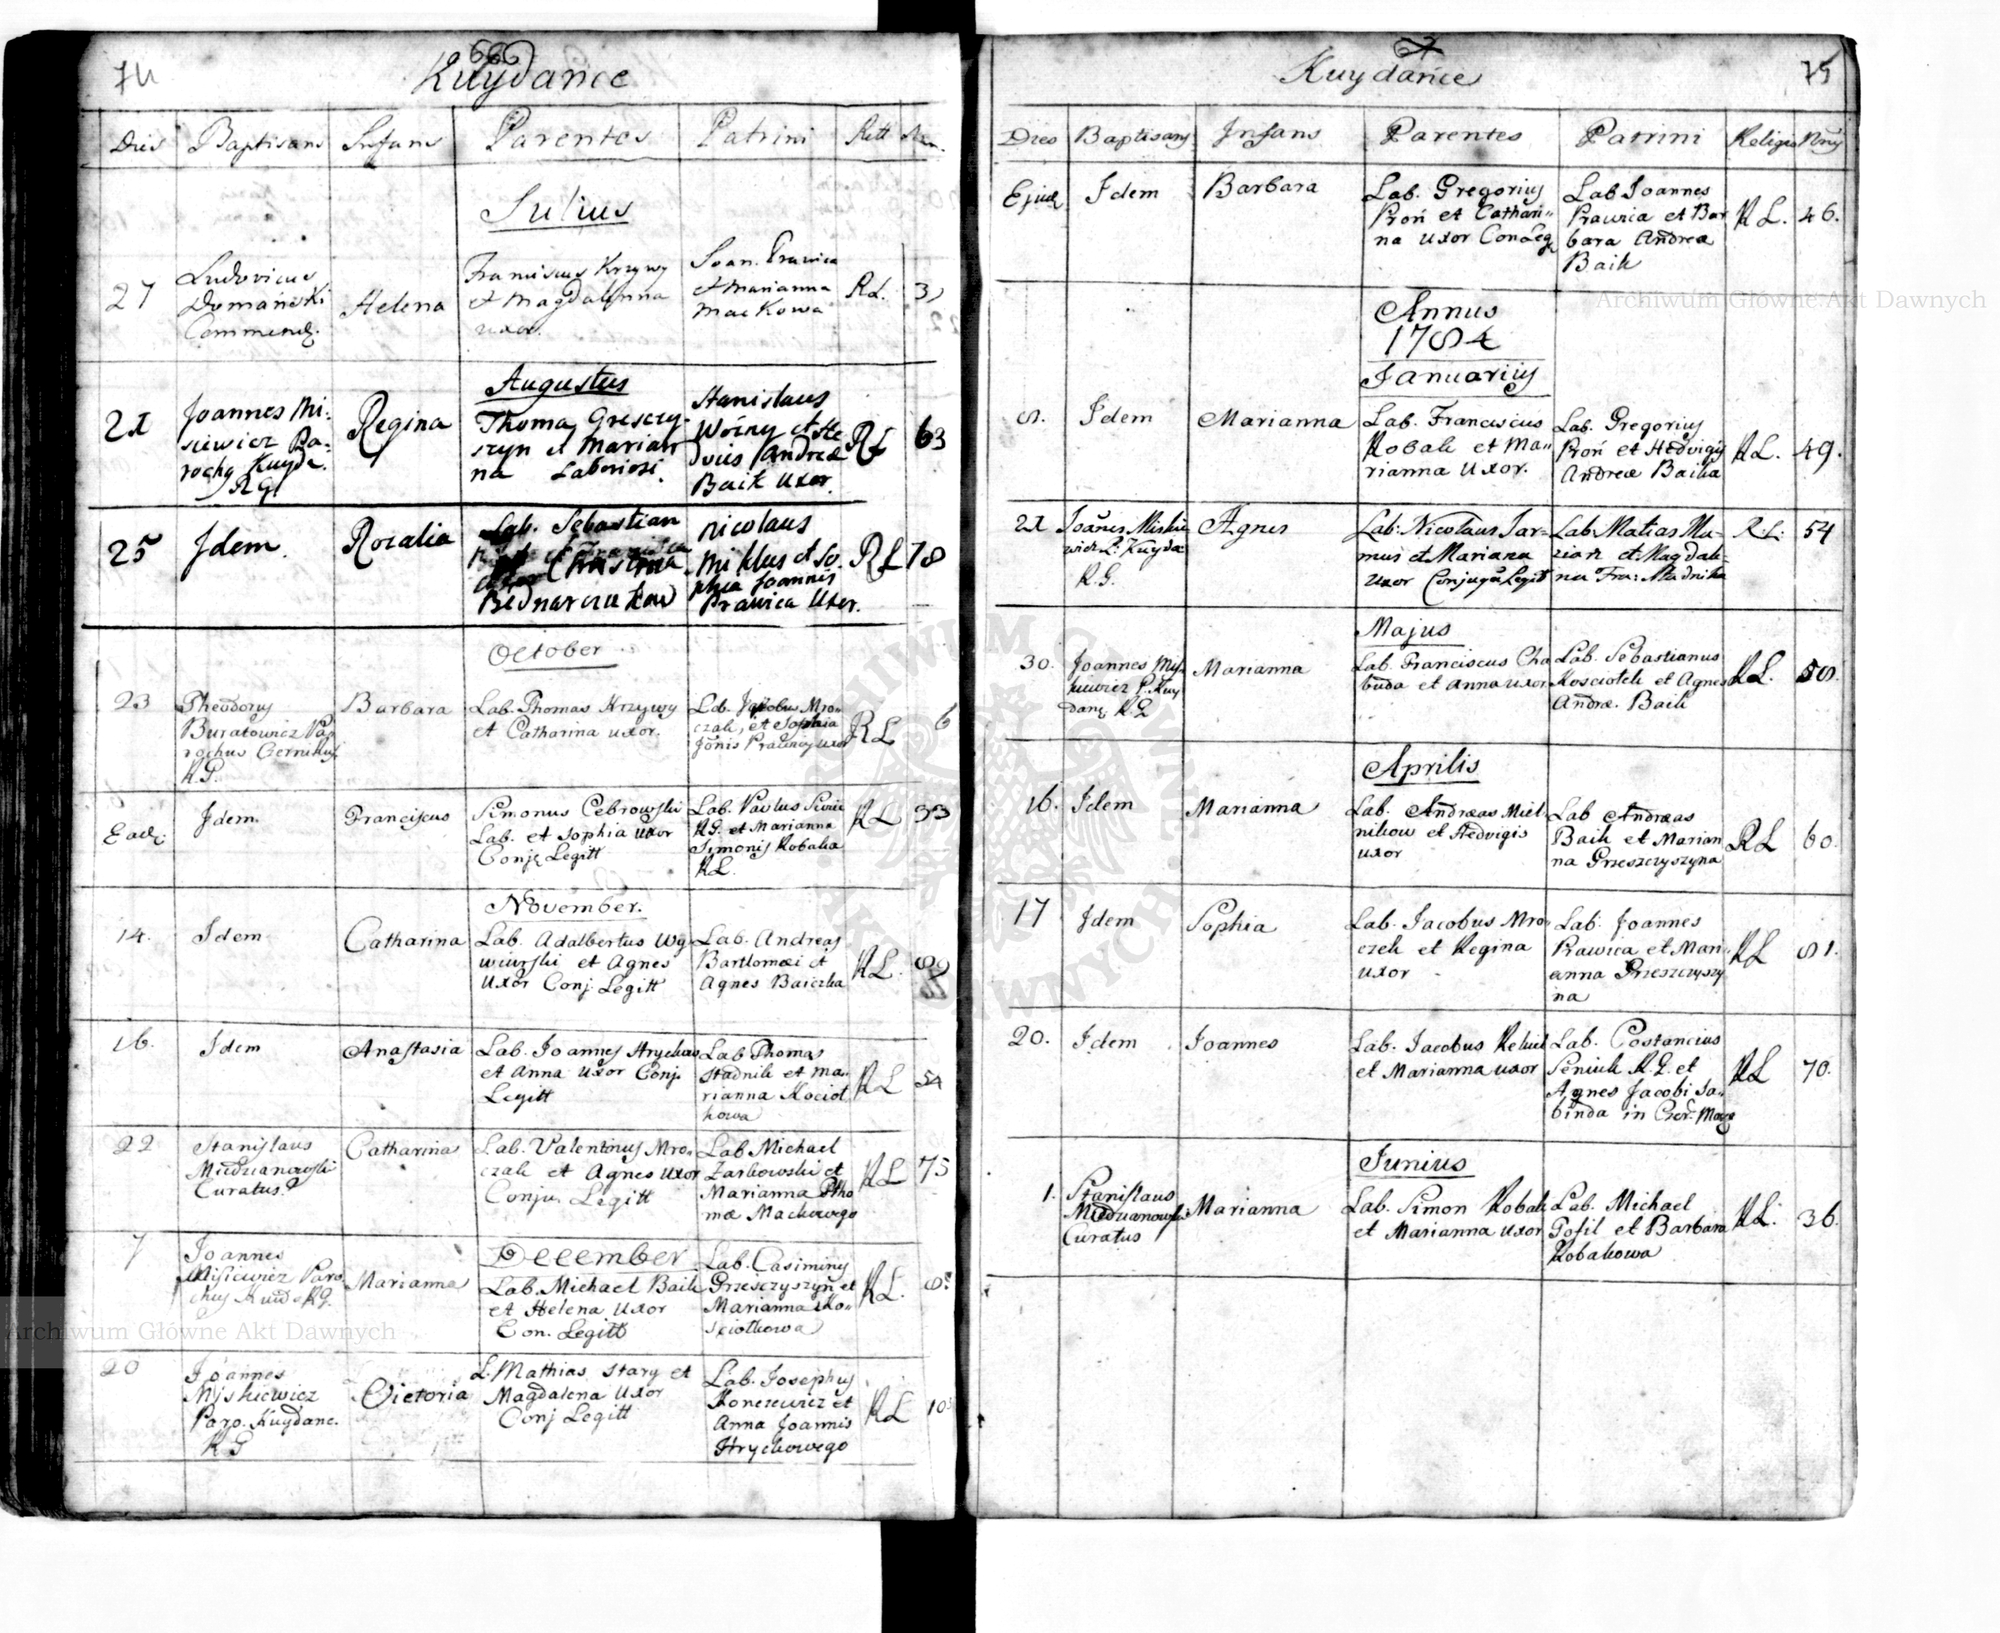 74
666
Kuydańce
Dies Baptisans Infans Parentes Patrini Rett Num.
Julius
27
Ludovicus
Domański
Commend.
Helena
Franciscus Krzywy
et Magdalenna
uxor.
Joan. Prawica
et Marianna
Maćkowa
RL.
Augustus
21
Joannes Mi-
siewicz Pa-
rochy Kuyda.
RG
Regina
Thomas Gresczy-
szyn et Marian
na Laboriosi.
Stanislaus
Woźny et He
dvis Andreæ
Baik Uxor.
RL
63
25
Jdem.
Rozalia
Lab. Sebastian
Christina
Bednarczukow
Nicolaus
Miklus et So-
phia Joannis
Prawica Uxor.
RL
78
October
23
Theodorus
Buratowicz Pa
rochus Czerniluv
R.G.
Barbara
Lab. Thomas Krzywy
et Catharina uxor.
Lab. Jacobus Mro-
czak, et Sophia
Jonis Prawicy uxor
RL
6
Ead.
Jdem
Franciscus
Simonus Cebrowski
Lab. et Sophia uxor
Conj. Legitt
Lab. Pavlus
RG. et Marianna
Simonis Robaka
RL.
RL
33
November.
14.
Jdem
Catharina
Lab. Adalbertus Wg-
wiurski et Agnes
Uxor Conj. Legitt
Lab. Andreas
Bartlomæi et
Agnes Baiczka
RL.
16.
Jdem
Anastasia
Lab. Joannes Hryckow
et Anna Uxor Conj.
Legitt
Lab Thomas
Stadnik et Ma-
rianna Kociot
kowa
RL
54
22
Stanislaus
Miedzianowski
Curatus.
Catharina
Lab. Valentinus Mro-
czak et Agnes Uxor
Conju. Legitt
Lab Michael
Zarkowski et
Marianna Tho
mæ Mackowego
RL
75
December
7
Joannes
Misiewicz Paro
chus Kuid. RG.
Marianna
Lab. Michael Baik
et Helena Uxor
Con. Legitt
Lab. Casimirus
Grzesczyszyn et
Marianna Ko-
sciotkowa
RL.
20
Joannes
Myskiewicz
Paro. Kuydanc.
RG
Victoria
L. Mathias Stary et
Magdalena Uxor
Conj Legitt
Lab. Josephus
Koncewicz et
Anna Joannis
Hryckowego
RL
10
75
67
Kuydańce
Dies Baptisans Infans Parentes Patrini Religio Nrus
Ejusd.
Jdem
Barbara
Lab. Gregorius
Proń et Cathari-
na uxor ConLeg
Lab Joannes
Prawica et Bar
bara Andreæ
Baik
RL.
46.
Annus
1784
Januarius
8.
Jdem
Marianna
Lab. Franciscus
Robak et Ma-
rianna Uxor.
Lab. Gregorius
Proń et Hedvigis
Andreæ Baika
RL.
49.
21
Joañes Miskie
wicz P. Kuyda
R.G.
Agnes
Lab: Nicolaus Jar-
mus et Mariana
Uxor Conjuga Legit
Lab. Matias Ma-
zian et Magdale-
na Fra: Stadnika
R. L:
54
Majus
30.
Joannes My-
skiewicz P. Kuy
danc. R.G
Marianna
Lab. Franciscus Cha
buda et Anna uxor
Lab. Sebastianus
Kosciotek et Agnes
Andre. Baik
RL.
58.
Aprilis
16.
Jdem
Marianna
Lab. Andreas Miel
nikow et Hedvigis
uxor
Lab Andreas
Baik et Marian
na Grzeszczyszyna
RL
60.
17
Jdem
Sophia
Lab. Jacobus Mro-
czek et Regina
uxor
Lab: Joannes
Prawica et Mari
anna Grzeszczyszy
na
RL
81.
20.
Jdem
Joannes
Lab. Jacobus
et Marianna uxor
Lab. Costancius
Seniuk R.G. et
Agnes Jacobi Ja-
binda in Czer. Mage
RL
70.
Junius
1.
Stanislaus
Miedzianowski
Curatus
Marianna
Lab. Simon Robak
et Marianna uxor
Lab. Michael
Gosil et Barbara
Robakowa
RL.
36.
Archiwum Główne Akt Dawnych
Archiwum Główne Akt Dawnych